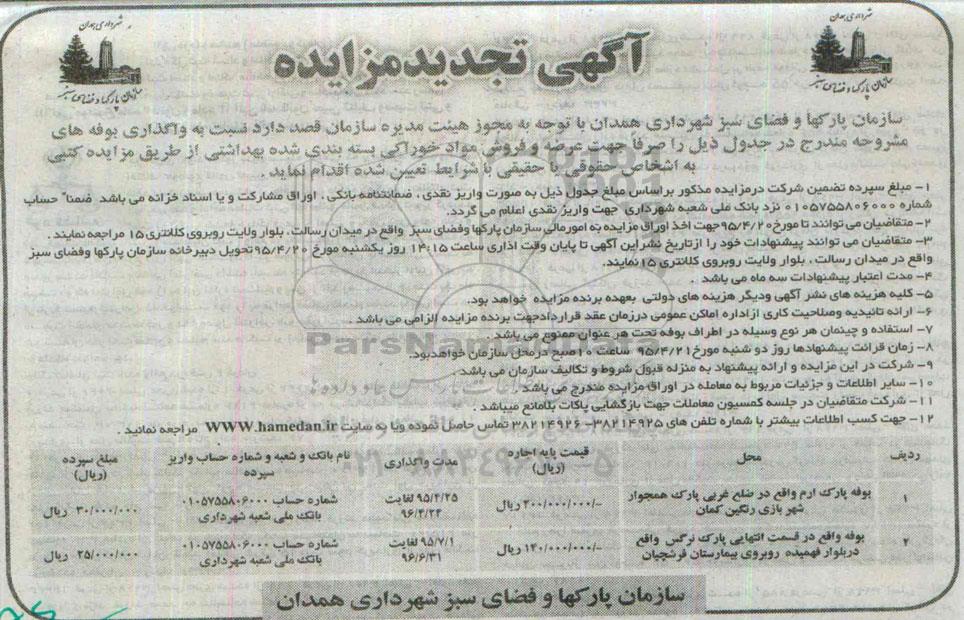 شهرداری همدان
سازمان پارکها و فضای سبز
شهرداری همدان
سازمان پارکها و فضای سبز
آگهی تجدید مزایده
سازمان پارکها و فضای سبز شهرداری همدان با توجه به مجوز هیئت مدیره سازمان قصد دارد نسبت به واگذاری بوفه های
مشروحه مندرج در جدول ذیل را صرفاً جهت عرضه و فروش مواد خوراکی بسته بندی شده بهداشتی از طریق مزایده کتبی
به اشخاص حقوقی یا حقیقی با شرایط تعیین شده اقدام نماید .
۱- مبلغ سپرده تضمین شرکت درمزایده مذکور براساس مبلغ جدول ذیل به صورت واریز نقدی ، ضمانتنامه بانکی ، اوراق مشارکت و یا اسناد خزانه می باشد ضمناً حساب
شماره ۰۱۰۵۷۵۵۸۰۶۰۰۰ نزد بانک ملی شعبه شهرداری جهت واریز نقدی اعلام می گردد.
۲- متقاضیان می توانند تا مورخ ۹۵/۴/۲۰ جهت اخذ اوراق مزایده به امورمالی سازمان پارکها وفضای سبز واقع در میدان رسالت ، بلوار ولایت روبروی کلانتری ۱۵ مراجعه نمایند.
۳- متقاضیان می توانند پیشنهادات خود را ازتاریخ نشر این آگهی تا پایان وقت اداری ساعت ۱۴:۱۵ روز یکشنبه مورخ ۹۵/۴/۲۰ تحویل دبیرخانه سازمان پارکها وفضای سبز
واقع در میدان رسالت ، بلوار ولایت روبروی کلانتری ۱۵ نمایند.
۴- مدت اعتبار پیشنهادات سه ماه می باشد .
۵- کلیه هزینه های نشر آگهی ودیگر هزینه های دولتی بعهده برنده مزایده خواهد بود.
۶- ارائه تائیدیه وصلاحیت کاری ازاداره اماکن عمومی درزمان عقد قراردادجهت برنده مزایده الزامی می باشد .
۷- استفاده و چینمان هر نوع وسیله در اطراف بوفه تحت هر عنوان ممنوع می باشد .
۸- زمان قرائت پیشنهادها روز دو شنبه مورخ ۹۵/۴/۲۱ ساعت ۱۰ صبح درمحل سازمان خواهدبود.
۹- شرکت در این مزایده و ارائه پیشنهاد به منزله قبول شروط و تکالیف سازمان می باشد .
۱۰- سایر اطلاعات و جزئیات مربوط به معامله در اوراق مزایده مندرج می باشد .
۱۱- شرکت متقاضیان در جلسه کمسیون معاملات جهت بازگشایی پاکات بلامانع میباشد .
۱۲- جهت کسب اطلاعات بیشتر با شماره تلفن های ۳۸۲۱۴۹۲۵-۳۸۲۱۴۹۲۶ تماس حاصل نموده ویا به سایت WWW.hamedan.ir مراجعه نمائید .
ParsNamadData
ردیف محل قیمت پایه اجاره (ریال) مدت واگذاری نام بانک و شعبه و شماره حساب واریز سپرده مبلغ سپرده (ریال)
۱ بوفه پارک ارم واقع در ضلع غربی پارک همجوار شهر بازی رنگین کمان ۴۰۰/۰۰۰/۰۰۰/- ریال ۹۵/۴/۲۵ لغایت ۹۶/۴/۲۴ شماره حساب ۰۱۰۵۷۵۵۸۰۶۰۰۰ بانک ملی شعبه شهرداری ۳۰/۰۰۰/۰۰۰ ریال
۲ بوفه واقع در قسمت انتهایی پارک نرگس واقع دربلوار فهمیده روبروی بیمارستان فرشچیان ۱۴۰/۰۰۰/۰۰۰/- ریال ۹۵/۷/۱ لغایت ۹۶/۶/۳۱ شماره حساب ۰۱۰۵۷۵۵۸۰۶۰۰۰ بانک ملی شعبه شهرداری ۲۵/۰۰۰/۰۰۰ ریال
سازمان پارکها و فضای سبز شهرداری همدان